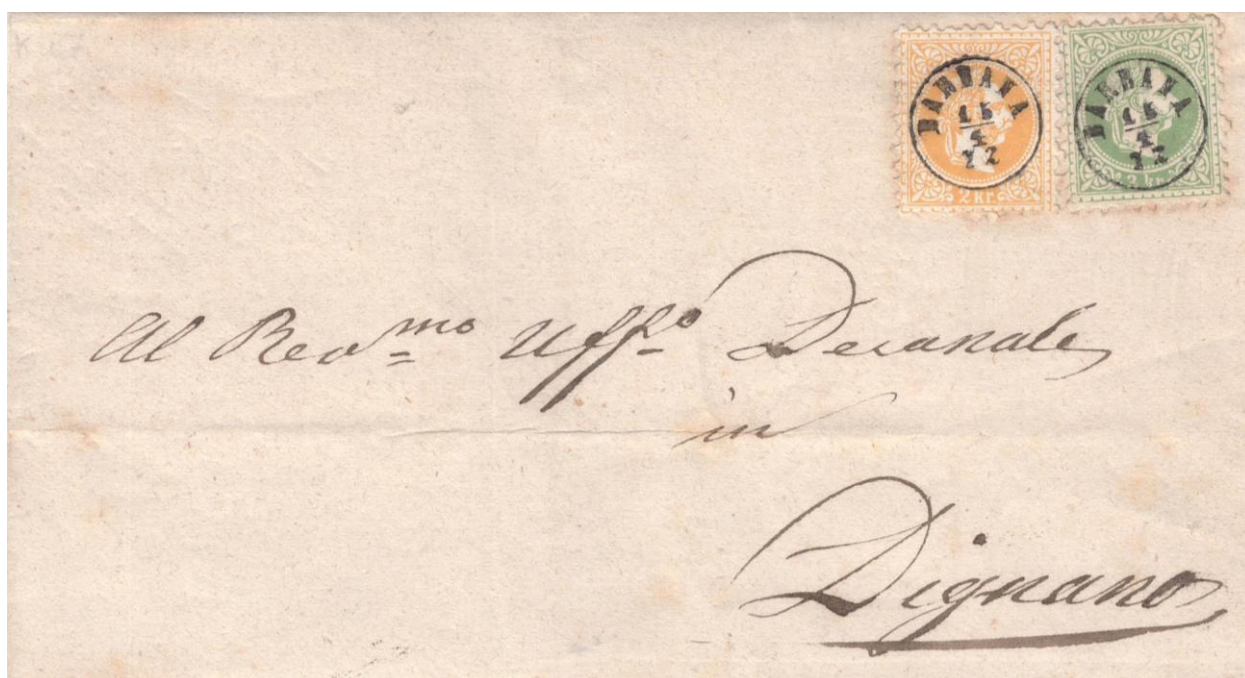 BARBANA
15
4
72
2 kr.
BARBANA
15
4
72
3 kr.
Al Rev.mo Uff.o Decanale
in
Dignano